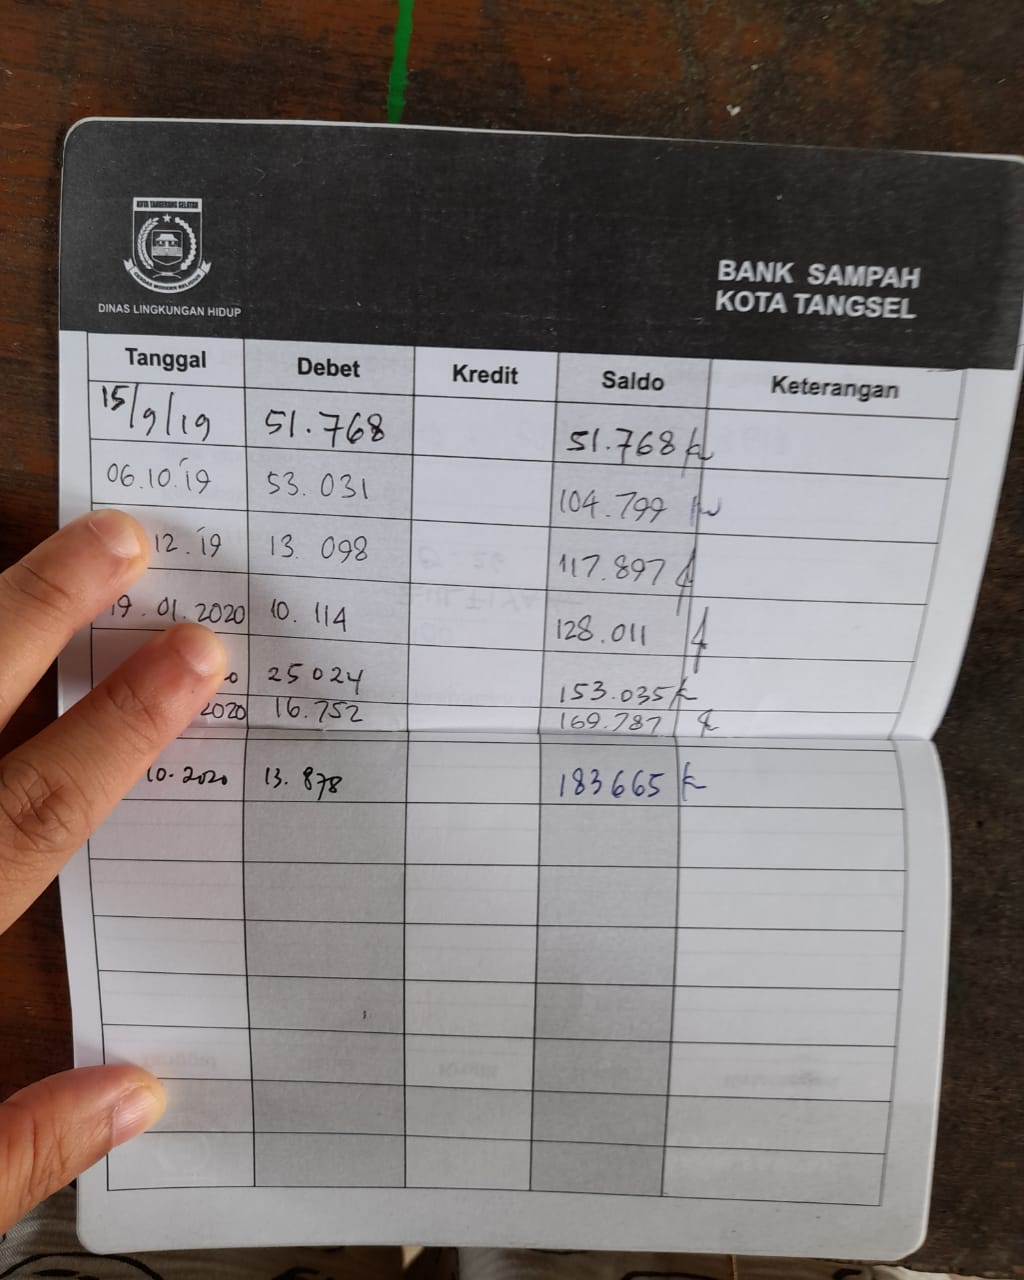 KOTA TANGERANG SELATAN
DINAS LINGKUNGAN HIDUP
BANK SAMPAH
KOTA TANGSEL
Tanggal Debet Kredit Saldo Keterangan
15/9/19 51.768 51.768
06.10.'19 53.031 104.799
12.'19 13.098 117.897
19.01.2020 10.114 128.011
25024 153.035
2020 16.752 169.787
10-2020 13.878 183665